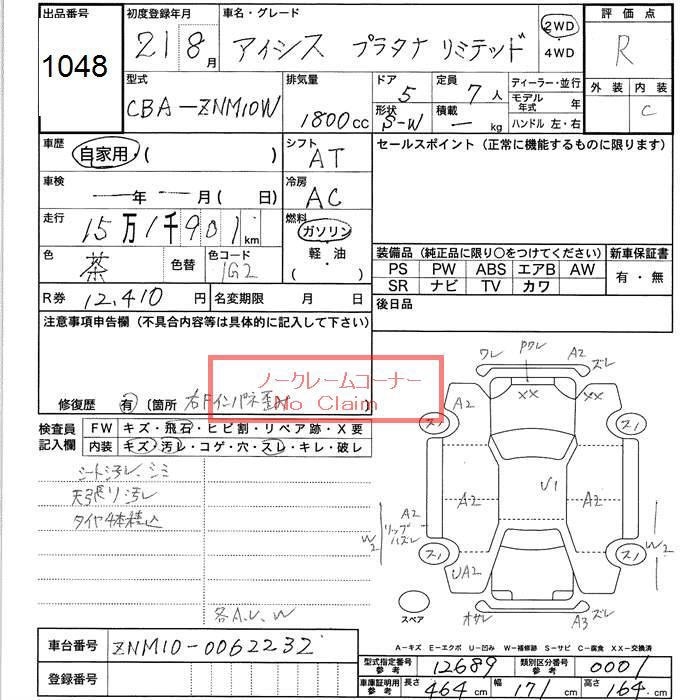 出品番号 初度登録年月 車名・グレード 評価点
1048 21 8月 アイシス プラタナ リミテッド 2WD 4WD R
外装 内装
C
型式 排気量 ドア 定員 ディーラー・並行
CBA-ZNM10W 1800cc 5 7人 モデル年式 年
形状 積載 ハンドル 左・右
S-W ー kg
車歴 シフト セールスポイント (正常に機能するものに限ります)
自家用・( ) AT
車検 冷房
ー年ー月( 日) AC
走行 燃料
15万1千901km ガソリン
軽・油
( )
色 色替 色コード
茶 1G2
装備品 (純正品に限り○をつけてください) 新車保証書
PS PW ABS エアB AW 有・無
SR ナビ TV カワ
R券 12,410 円 名変期限 月 日 後日品
注意事項申告欄 (不具合内容等は具体的に記入して下さい)
ノークレームコーナー
No Claim
修復歴 有 〔箇所 右Fインパネ歪
検査員記入欄 FW キズ・飛石・ヒビ割・リペア跡・X要
内装 キズ・汚レ・コゲ・穴・スレ・キレ・破レ
シート汚レ、シミ
天張リ汚レ
タイヤ4本積込
各A.U.W
ワレ Pワレ A2 ズレ
A2 XX XX
スノ スノ
A2 U1 A2
A2 リップハズレ
W2 W2
スノ スノ
UA2 A2
スペア オサレ A3 ズレ
A-キズ E-エクボ U-凹み W-補修跡 S-サビ C-腐食 XX-交換済
車台番号 ZNM10-0062232
登録番号
型式指定番号参考 12689 類別区分番号参考 0001
車庫証明用参考 長さ 464cm 幅 171cm 高さ 164cm